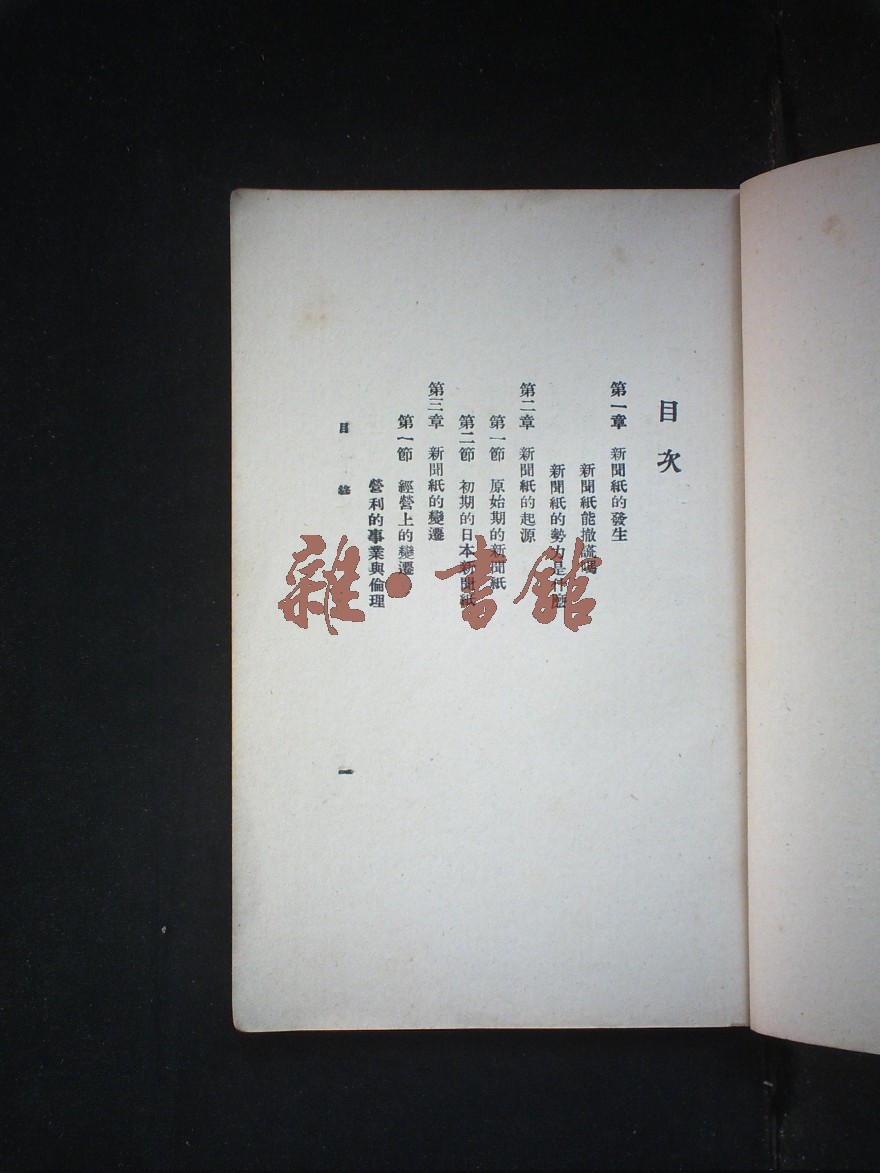 目次
第一章 新聞紙的發生
新聞紙能撤謊嗎
新聞紙的勢力是什麼
第二章 新聞紙的起源
第一節 原始期的新聞紙
第二節 初期的日本新聞紙
第三章 新聞紙的變遷
第一節 經營上的變遷
營利的事業與倫理
目 錄
一
雜·書館